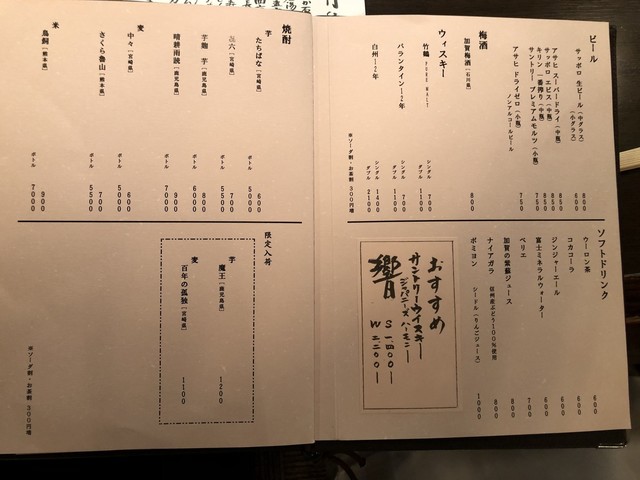 ビール
サッポロ 生ビール(中グラス) 800
(小グラス) 600
アサヒ スーパードライ(中瓶) 850
サッポロ エビス(中瓶) 850
キリン 一番搾り(中瓶) 850
サントリー プレミアムモルツ(小瓶) 750
アサヒ ドライゼロ(小瓶) 750
ノンアルコールビール
梅酒
加賀梅酒[石川県] 800
ウィスキー
竹鶴 PURE MALT シングル 700
ダブル 1100
バランタイン12年 シングル 700
ダブル 1100
白州12年 シングル 1400
ダブル 2100
※ソーダ割・お茶割 300円増
ソフトドリンク
ウーロン茶 600
コカコーラ 600
ジンジャーエール 600
富士ミネラルウォーター 600
ペリエ 700
加賀の紫蘇ジュース 800
ナイアガラ 信州産ぶどう100%使用 800
ポミヨン シードル(りんごジュース) 1000
おすすめ
サントリーウイスキー
ジャパニーズハーモニー
響
S 1,400ー
W 2,200ー
焼酎
芋
たちばな[宮崎県] 600
ボトル 5000
㐂六[宮崎県] 700
ボトル 5500
芋麹 芋[鹿児島県] 800
ボトル 6000
晴耕雨読[鹿児島県] 900
ボトル 7000
麦
中々[宮崎県] 600
ボトル 5000
さくら魯山[熊本県] 700
ボトル 5500
米
鳥飼[熊本県] 900
ボトル 7000
限定入荷
芋
魔王[鹿児島県] 1200
麦
百年の孤独[宮崎県] 1100
※ソーダ割・お茶割 300円増